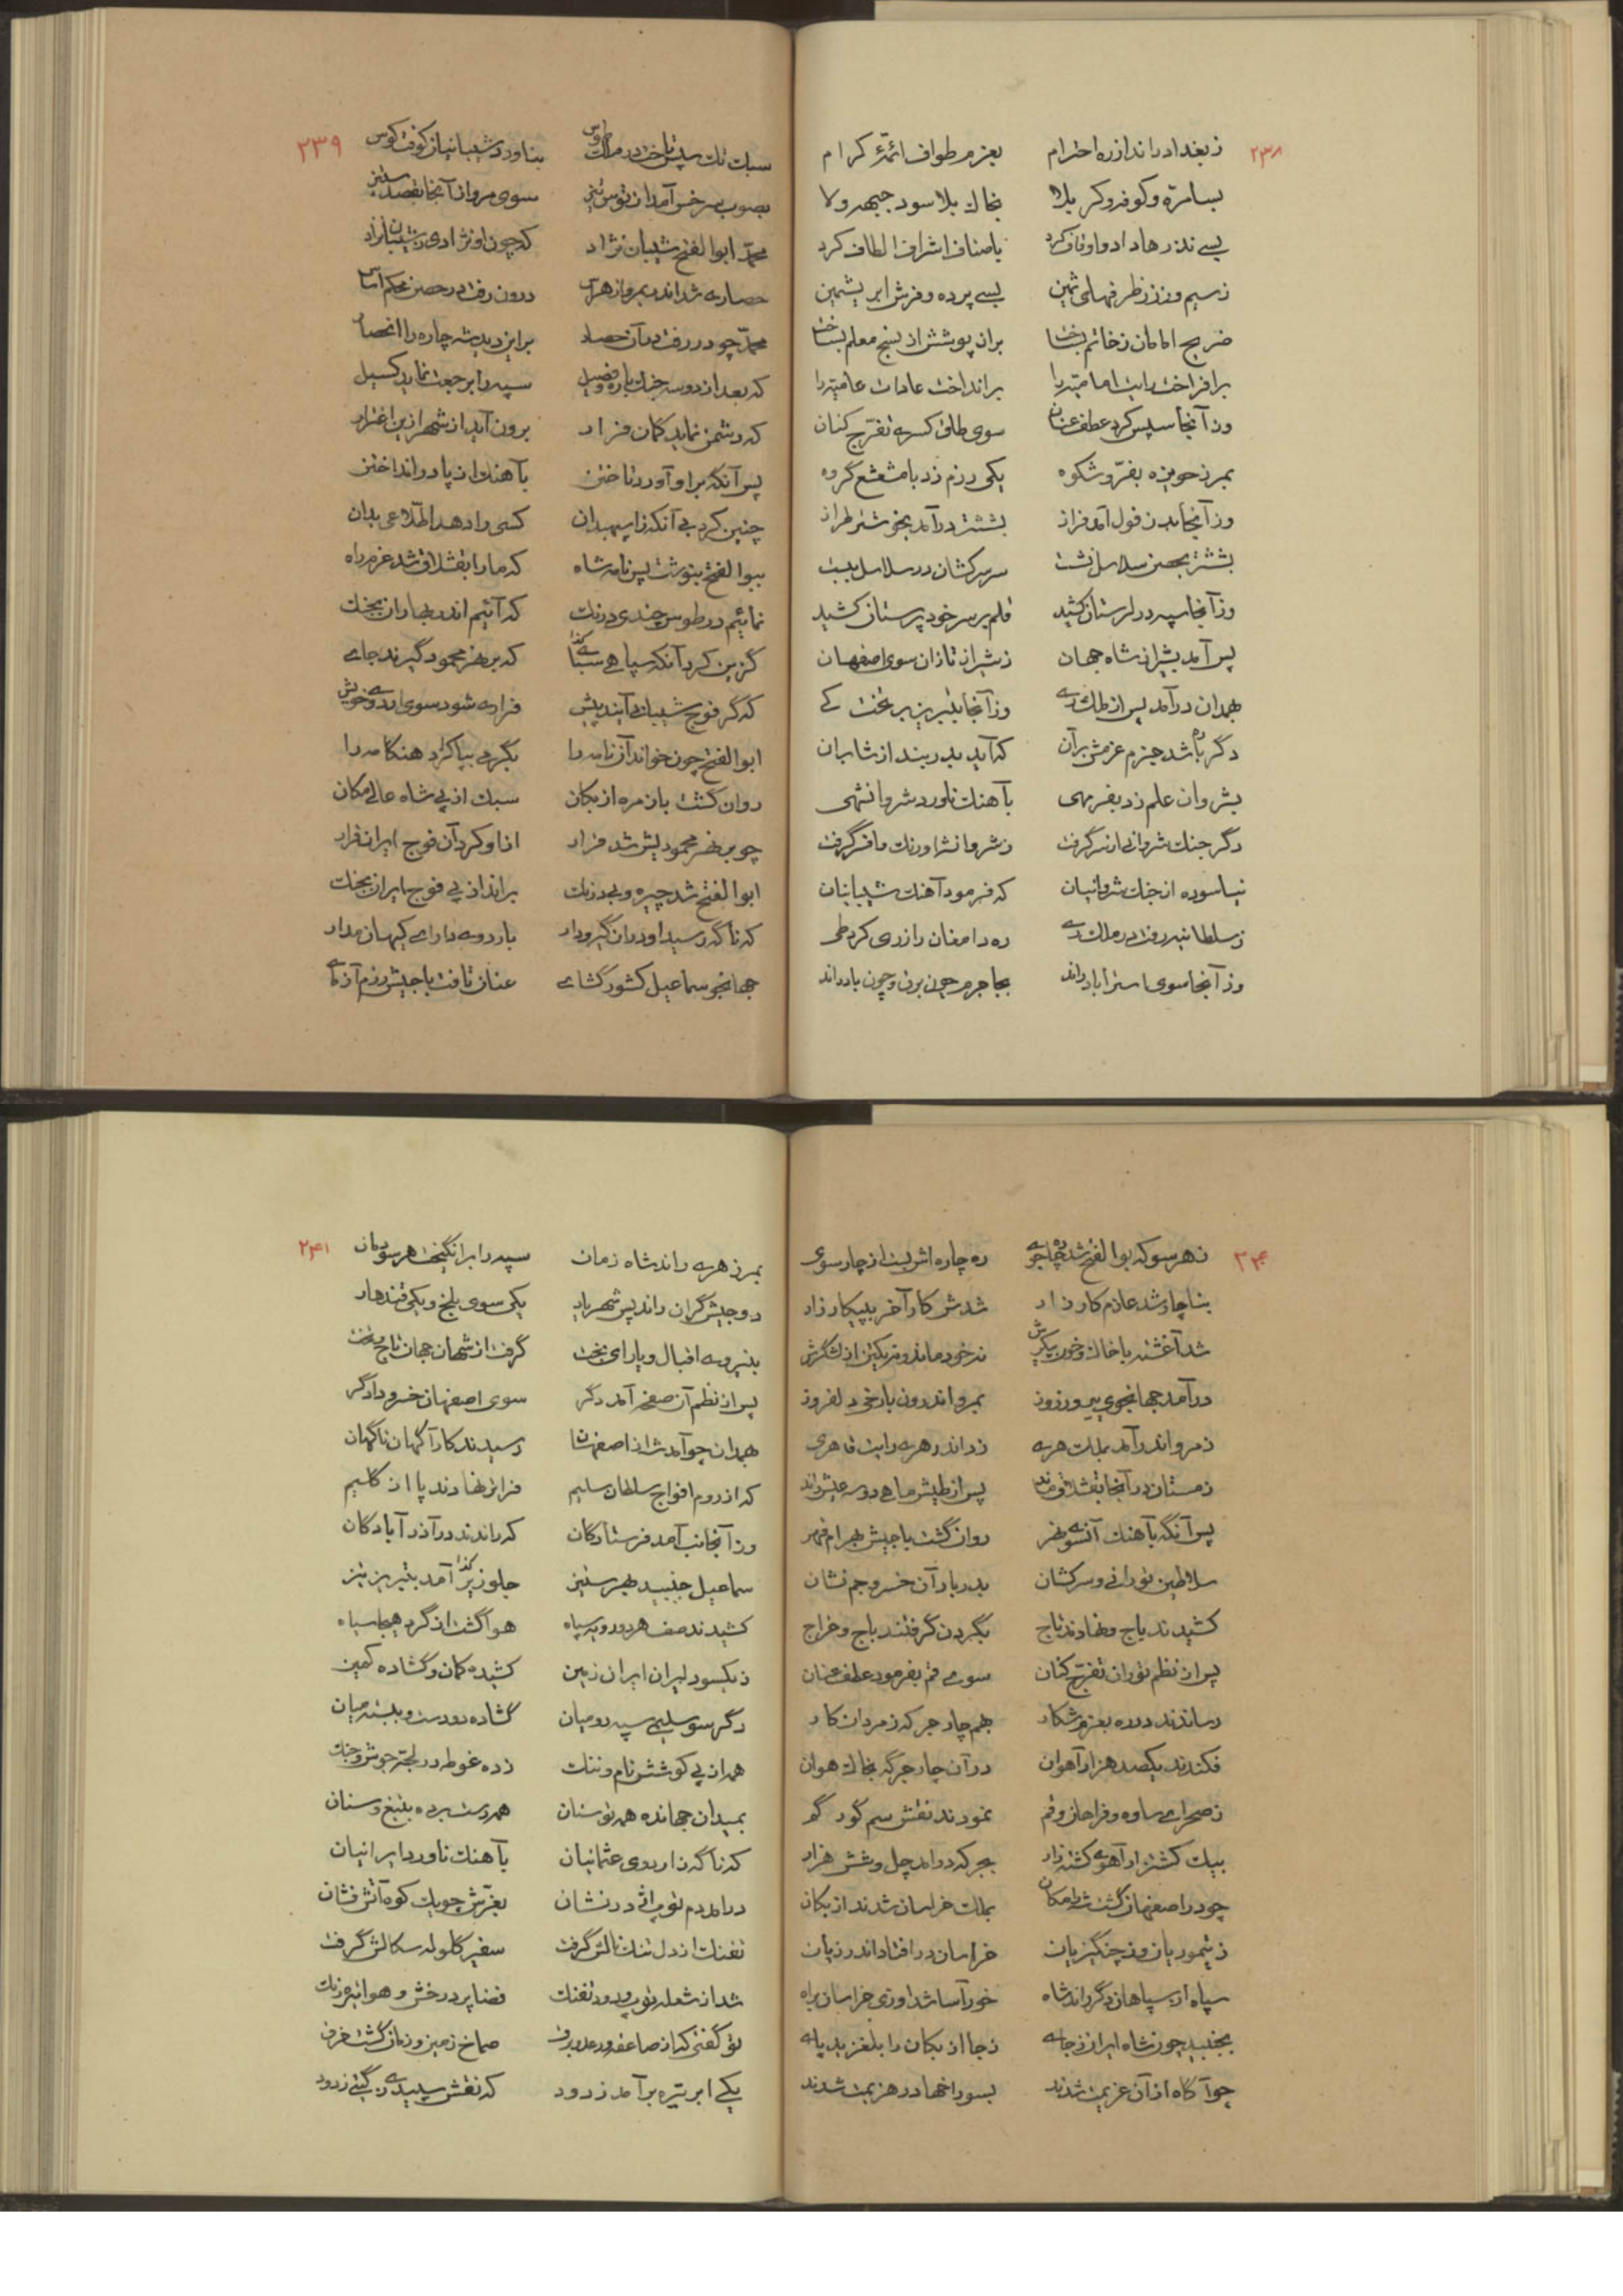 ۲۳۸
ز بغداد راند از ره احترام بعزم طواف ائمّهٔ کرام
بسامرّه و کوفه و کربلا بخاک بلا سود جبهه ولا
بسی نذرها داد و اوقاف کرد باصناف اشراف الطاف کرد
ز سیم و ز زر ظرفهای ثمین بسی پرده و فرش ابریشمین
ضریح امامان ز خاتم بساخت بران پوشش از نسج معلم بساخت
برافراخت رایت امامیّه را برانداخت عادات عامیّه را
وز آنجا سپس کرد عطف عنان سوی طاق کسری تفرّج کنان
بمرز حویزه بفرّ و شکوه یکی رزم زد با مشعشع گروه
وز آنجا بدزفول آمد فراز بششتر درآمد بخوشتر طراز
بششتر بحصن سلاسل نشست سر سرکشان در سلاسل ببست
وز آنجا سپه در لرستان کشید قلم بر سر خودپرستان کشید
پس آمد بشیراز شاه جهان ز شیراز تازان سوی اصفهان
بهمدان درآمد پس از ملک ری وز آنجا بتبریز بر تخت کی
دگر باره شد جزم عزمش بر آن که آید بدربند از شابران
بشروان علم زد بفر مهی بآهنگ ناورد شروانشهی
دگر جنگ شروانی از سر گرفت ز شروانشه اورنگ و افسر گرفت
نیاسوده از جنگ شروانیان که فرمود آهنگ شیبانیان
ز سلطانیه رفت در ملک ری ره دامغان را ز ری کرد طی
وز آنجا سوی استراباد راند بجاجرم چون برق و چون باد راند
۲۳۹
سبک تک سپس تاخت در ملک طوس بناورد شیبانیان کوفت کوس
بصوب سرخس آمد از طوس نیز سوی مرو از آنجا بقصد ستیز
محمّد ابوالفتح شیبان نژاد که چون او نژادی ز شیبان نزاد
حصاری شد اندر مرو از هراس درون رفت در حصن محکم اساس
محمّد چو در رفت در آن حصار بر این دید شه چاره را انحصار
که بعد از دو سه جنگ با وی قبیل سپه را برجعت نماید گسیل
که دشمن نماید گمان فرار برون آید از شهر ازین اغترار
پس آنگه بر او آورد تاختن بآهنگ از پا در انداختن
چنین کرد بی آنکه زاسپهبدان کسی را دهد اطّلاعی بدان
ببوالفتح بنوشت پس نامه شاه که ما را بقشلاق شد عزم راه
نمائیم در طوس چندی درنگ که آئیم اندر بهاران بجنگ
گزین کرد آنگه سپاهی سبا کذا که بر نهر محمود گیرند جای
که گر فوج شیبانی آیند پیش فراری شود سوی اردوی خویش
ابوالفتح چون خواند آن نامه را بگرمی بپا کرد هنگامه را
روان گشت با زمره ازبکان سبک از پی شاه عالی مکان
چو بر نهر محمودیش شد فرار از او کرد آن فوج ایران فرار
ابوالفتح شد چیره و بی درنگ براند از پی فوج ایران بجنگ
که ناگه رسید اندران گیرودار باردوی دارای کیهان مدار
جهانجو سماعیل کشور گشای عنان تافت با جیش رزم آزمای
۲۴۰
ز هر سو که بوالفتح شد چاره جوی ره چاره اش بست از چار سوی
بناچار شد عازم کارزار شدش کار آخر بپیکار زار
شد آغشته با خاک و خون پیکرش نه خود ماند و نه یکتن از لشگرش
درآمد جهانجوی پیروز روز بمرو اندرون با رخی دلفروز
ز مرو اندر آمد بملک هری زد اندر هری رایت قاهری
زمستان در آنجا بقشلاق ماند پس از طیش ماهی دو سه عیش راند
پس آنگه بآهنگ آنسوی نهر روان گشت با جیش بهرام قهر
سلاطین تورانی و سرکشان بدربار آن خسرو جم نشان
کشیدند باج و نهادند تاج بگردن گرفتند باج و خراج
پس از نظم توران تفرّج کنان سوی قم بفرمود عطف عنان
رساندند در ره بعزم شکار بهم چار جرگه ز مردان کار
فکندند یکصد هزار آهوان در آن چار جرگه بخاک هوان
ز صحرای ساوه و فراهان و قم نمودند نقش سم گور گم
بیک کشتزار آهوی کشته زار بجرگه درآمد چل و شش هزار
چو در اصفهان گشت شه را مکان بملک خراسان شدند ازبکان
ز تیموریان وز چنگیزیان خراسان در افتاد اندر زیان
سپاه از سپاهان دگر راند شاه خورآسا شد اوری خراسان براه
بجنبید چون شاه ایران ز جای ز جا ازبکان را بلغزید پای
چو آگاه از آن عزیمت شدند بسوراخها در هزیمت شدند
۲۴۱
بمرز هری راند شاه زمان سپه را برانگیخت هر سو دمان
دو جیش گران راند پس شهریار یکی سوی بلخ و یکی قندهار
بنیروی اقبال و یارای بخت گرفت از شهان جهان تاج و تخت
پس از نظم آن صفحه آمد دگر سوی اصفهان خسرو دادگر
بهمدان چو آمد شه از اصفهان رسیدند کارآگهان ناگهان
که از روم افواج سلطان سلیم فراتر نهادند پا از گلیم
وز آنجانب آمد فرستادگان که راندند در آذرآبادگان
سماعیل جنبید بهر ستیز جلوزیز کذا آمد بتبریز نیز
کشیدند صف هر دو رویه سپاه هوا گشت از گرد هیجا سیاه
ز یکسو دلیران ایران زمین کشیده کمان و گشاده کمین
دگر سو سلیمی سپه رومیان گشاده دو دست و ببسته میان
همه از پی کوشش نام و ننگ زده غوطه در لجّهٔ جوش و جنگ
بمیدان جهانده همه توسنان همه دست برده بتیغ و سنان
که ناگه ز اردوی عثمانیان بآهنگ ناورد ایرانیان
درآمد دم توپ اژدر نشان بغرّش چو یک کوه آتش فشان
تفنگ از دل تنگ نالش گرفت سفیر گلوله سگالش گرفت
شد از شعله توپ و دود تفنگ فضا پر درخش و هوا تیره رنگ
تو گفتی که از صاعقه و رعد و برق صماخ زمین و زمان گشت خرق
یکی ابر تیره برآمد ز دود که نقش سپیدی ز گیتی زدود